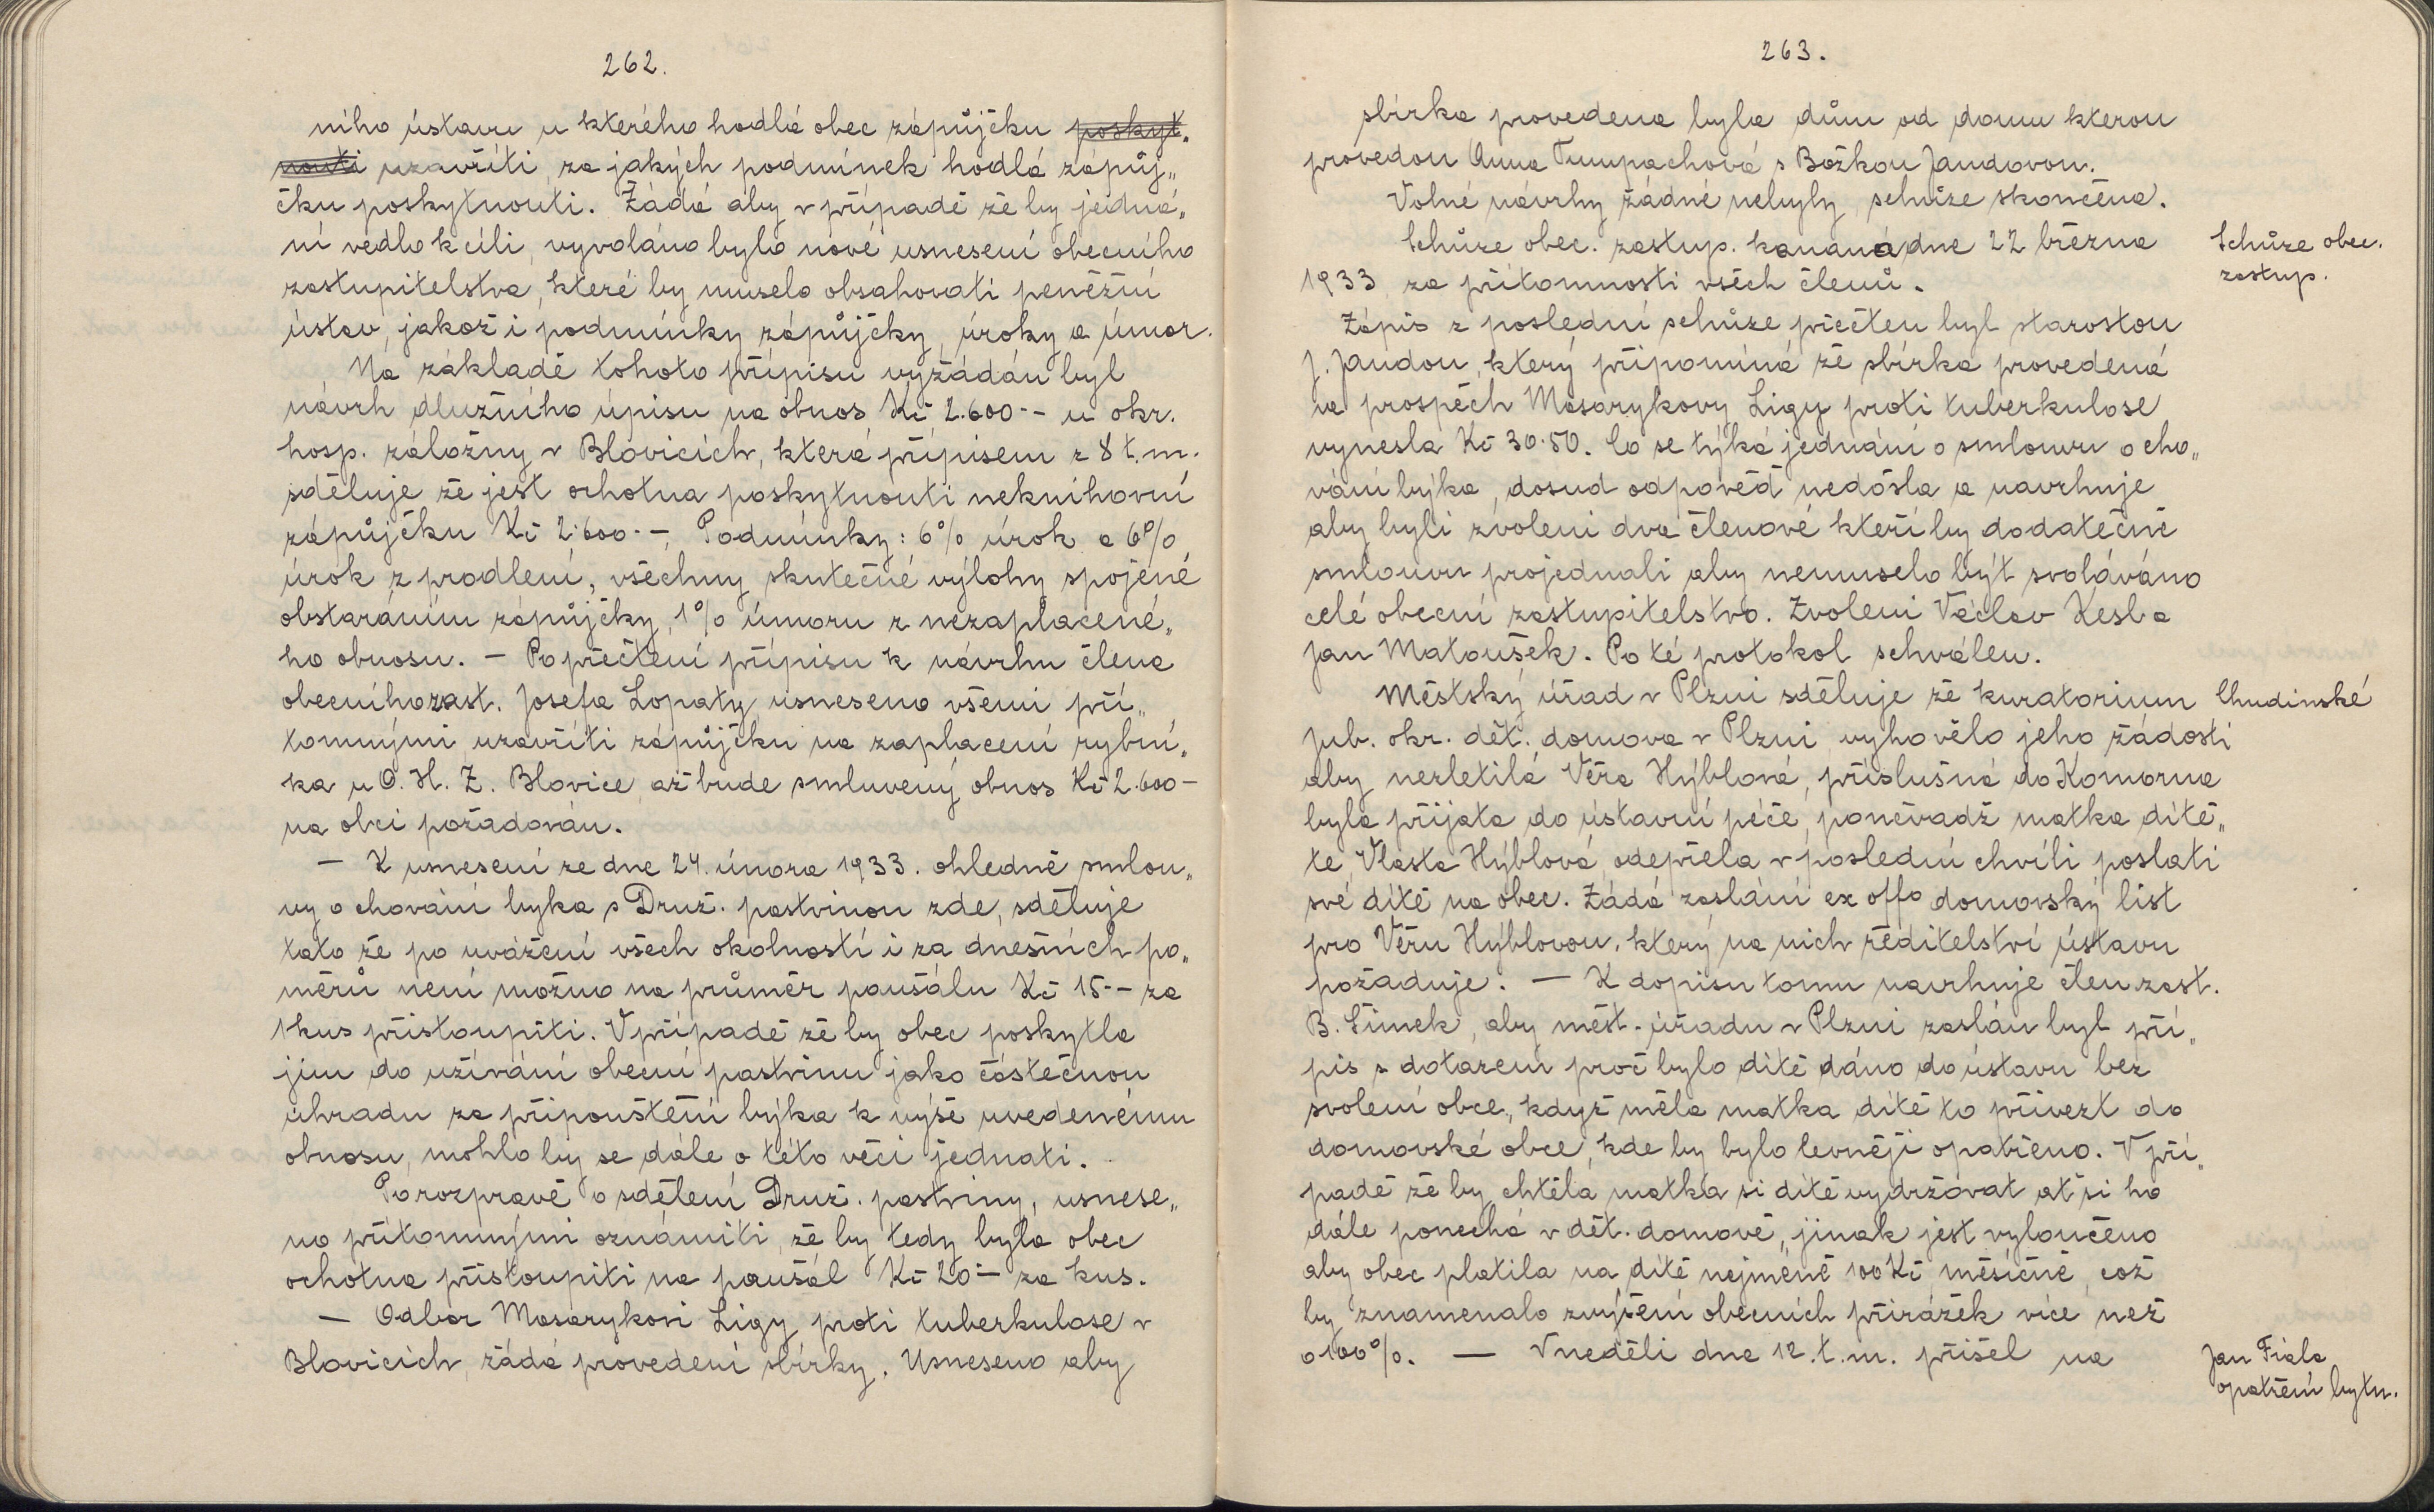 262.
ního ústavu u kterého hodlá obec zápůjčku poskyt„
nouti uzavříti, za jakých podmínek hodlá zápůj„
čku poskytnouti. Žádá aby v případě že by jedná„
ní vedlo k cíli, vyvoláno bylo nové usnesení obecního
zastupitelstva, které by muselo obsahovati peněžní
ústav, jakož i podmínky zápůjčky, úroky a úmor.
Na základě tohoto přípisu vyžádán byl
návrh dlužního úpisu na obnos Kč 2.600·- u okr.
hosp. záložny v Blovicích, která přípisem z 8 t.m.
sděluje že jest ochotna poskytnouti neknihovní
zápůjčku Kč 2.600·-, Podmínky: 6% úrok a 6%
úrok z prodlení, všechny skutečné výlohy spojené
obstaráním zápůjčky, 1% úmoru z nezaplacené„
ho obnosu. - Po přečtení přípisu k návrhu člena
obecního zast. Josefa Lopaty usneseno všemi pří„
tomnými uzavříti zápůjčku na zaplacení rybní„
ka u O. H. Z. Blovice, až bude smluvený obnos Kč 2.600-
na obci požadován.
- K usnesení ze dne 24. února 1933. ohledně smlou„
vy o chování býka s Druž. pastvinou zde, sděluje
tato že po uvážení všech okolností i za dnešních po„
měrů není možno na průměr paušálu Kč 15·- za
1 kus přistoupiti. V případě že by obec poskytla
jim do užívání obecní pastvinu jako částečnou
úhradu za připouštění býka k výše uvedenému
obnosu, mohlo by se dále o této věci jednati.
Po rozpravě o sdělení Druž. pastviny, usnese„
no přítomnými oznámiti, že by tedy byla obec
ochotna přistoupiti na paušál Kč 20·- za kus.
- Odbor Masarykovi Ligy proti tuberkulose v
Blovicích, žádá provedení sbírky. Usneseno aby
263.
sbírka provedena byla dům od domu kterou
provedou Anna Tumpachová s Božkou Jandovou.
Volné návrhy žádné nebyly, schůze skončena.
Schůze obec. zastup. konaná dne 22 března
1933 za přítomnosti všech členů.
Schůze obec.
zastup.
Zápis z poslední schůze přečten byl starostou
J. Jandou, který připomíná že sbírka provedená
ve prospěch Masarykovy Ligy proti tuberkulose
vynesla Kč 30·50. Co se týká jednání o smlouvu o cho„
vání býka, dosud odpověď nedošla a navrhuje
aby byli zvoleni dva členové kteří by dodatečně
smlouvu projednali aby nemuselo být svoláváno
celé obecní zastupitelstvo. Zvoleni Václav Kesl a
Jan Matoušek. Po té protokol schválen.
Městský úřad v Plzni sděluje že kuratorium
Chudinské
Jub. okr. dět. domova v Plzni vyhovělo jeho žádosti
aby nezletilá Věra Hýblová, příslušná do Komorna
byla přijata do ústavní péče, poněvadž matka dítě„
te, Vlasta Hýblová, odepřela v poslední chvíli poslati
své dítě na obec. Žádá zaslání ex offo domovský list
pro Věru Hýblovou, který na nich ředitelství ústavu
požaduje. - K dopisu tomu navrhuje člen zast.
B. Šimek, aby měst. úřadu v Plzni zaslán byl pří„
pis s dotazem proč bylo dítě dáno do ústavu bez
svolení obce, když měla matka dítě to přivezt do
domovské obce, kde by bylo levněji opatřeno. V pří„
padě že by chtěla matka si dítě vydržovat ať si ho
dále ponechá v dět. domově, jinak jest vyloučeno
aby obec platila na dítě nejméně 100 Kč měsíčně, což
by znamenalo zvýšení obecních přirážek více než
o 100%. - V neděli dne 12. t. m. přišel na
Jan Fiala
opatření bytu.